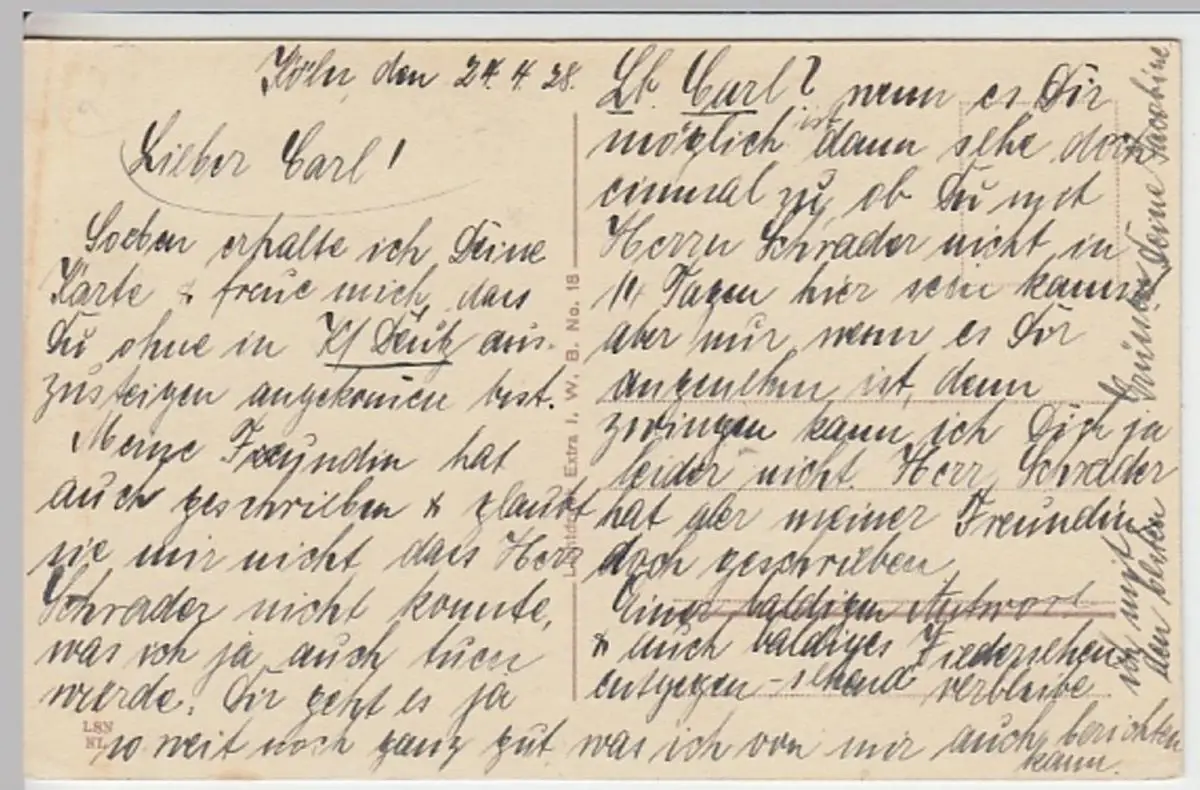 Köln, den 24. 4. 28.
Lieber Carl!
Soeben erhalte ich Deine
Karte & freue mich, dass
Du ohne in K/Deutz aus-
zusteigen angekomen bist.
Meine Freundin hat
auch geschrieben & glaubt
sie mir nicht dass Herr
Schrader nicht konnte,
was ich ja auch tuen
würde. Dir geht es ja
so weit noch ganz gut was ich von mir auch berichten
kann.
Lb. Carl? wenn es Dir
möglich ist dann sehe doch
einmal zu, ob Du mit
Herrn Schrader nicht in
14 Tagen hier sein kannst
aber nur, wenn es Dir
angenehm ist, denn
zwingen kann ich Dich ja
leider nicht. Herr Schrader
hat aber meiner Freundin
doch geschrieben.
Einer baldigen Antwort
& auch baldiges Wiedersehen
entgegen-sehend verbleibe
ich mit
den besten
Grüßen Deine Jacobine
Extra I. W. B. No. 18
LSN
NL